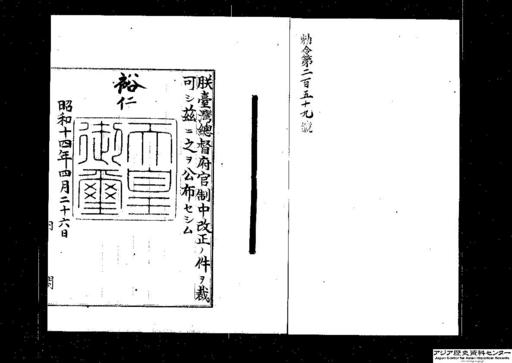 勅令第二百五十九號
朕臺灣總督府官制中改正ノ件ヲ裁
可シ茲ニ之ヲ公布セシム
裕仁
天皇御璽
昭和十四年四月二十六日
内閣
アジア歴史資料センター
Japan Center for Asian Historical Records